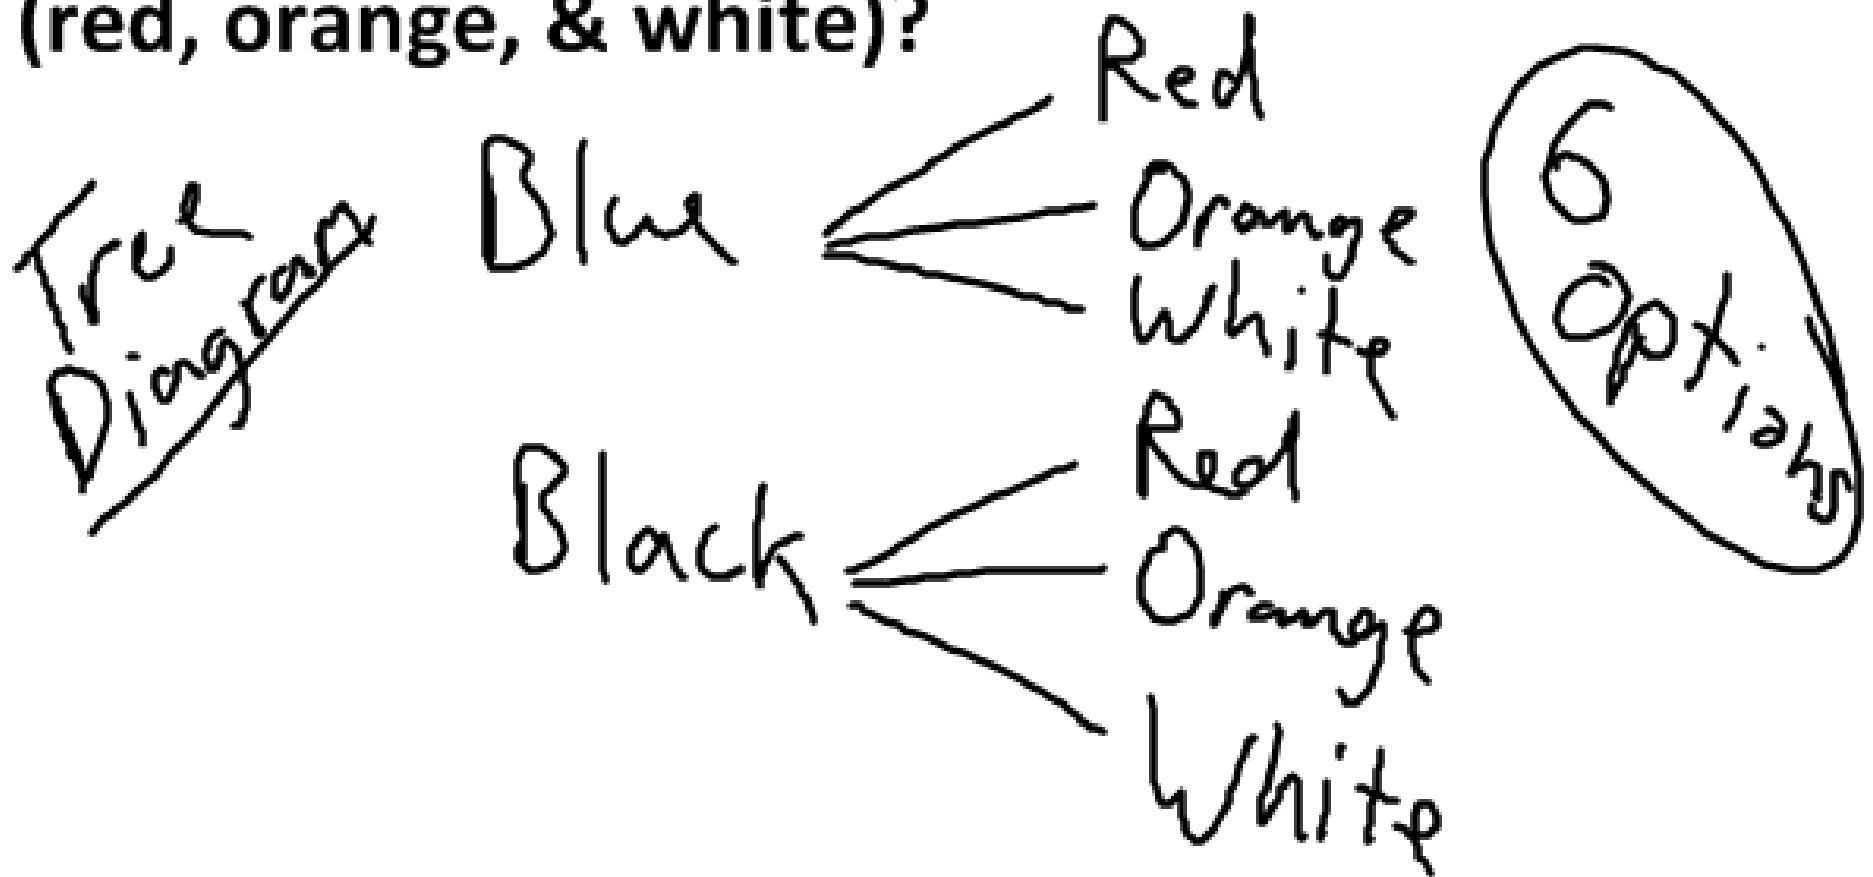 (red, orange, & white)?
Tree
Diagram
Blue
Red
Orange
White
Black
Red
Orange
White
6
Options